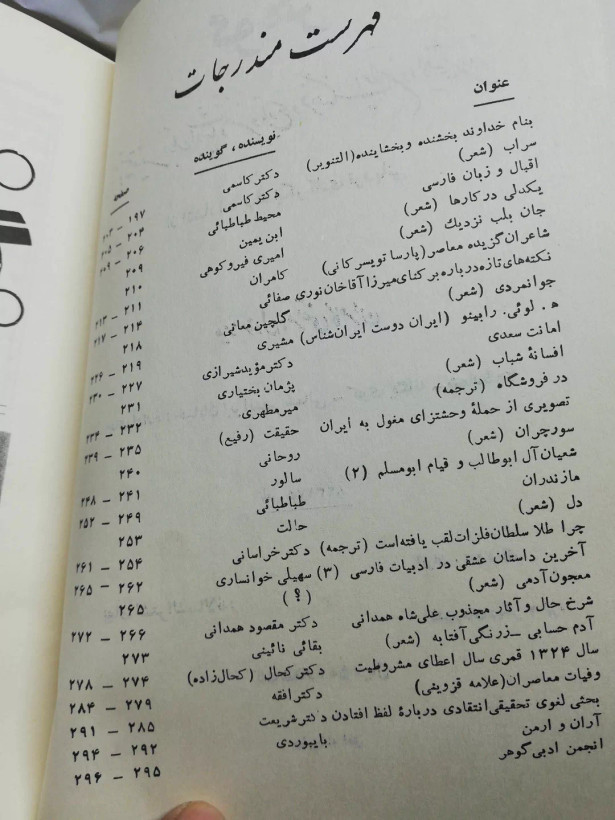 فهرست مندرجات
عنوان نویسنده ، گوینده صفحه
بنام خداوند بخشنده و بخشاینده (التنویر) دکتر کاسمی ۱۹۷ – ۲۰۳
سراب (شعر) دکتر کاسمی ۲۰۴ – ۲۰۵
اقبال و زبان فارسی محیط طباطبائی ۲۰۶ – ۲۰۹
یکدلی در کارها (شعر) ابن یمین ۲۰۹
جان بلب نزدیك (شعر) امیری فیروکوهی ۲۱۰
شاعران گزیده معاصر (پارسا تویسرکانی) کامران ۲۱۱ – ۲۱۳
نکته‌های تازه درباره برکنای میرزا آقاخان نوری صفائی ۲۱۴ – ۲۱۷
جوانمردی (شعر) گلچین معانی ۲۱۸
ه . لوئی . رابینو (ایران دوست ایران‌شناس) مشیری ۲۱۹ – ۲۲۶
امانت سعدی دکتر مؤید شیرازی ۲۲۷ – ۲۳۰
افسانهٔ شباب (شعر) پژمان بختیاری ۲۳۱
در فروشگاه (ترجمه) میرمطهری ۲۳۲ – ۲۳۴
تصویری از حملهٔ وحشتزای مغول به ایران حقیقت (رفیع) ۲۳۵ – ۲۳۹
سورچران (شعر) روحانی ۲۴۰
شعیان آل ابوطالب و قیام ابومسلم (۲) سالور ۲۴۱ – ۲۴۸
مازندران طباطبائی ۲۴۹ – ۲۵۲
دل (شعر) حالت ۲۵۳
چرا طلا سلطان فلزات لقب یافته‌است (ترجمه) دکتر خراسانی ۲۵۴ – ۲۶۱
آخرین داستان عشقی در ادبیات فارسی (۳) سهیلی خوانساری ۲۶۲ – ۲۶۵
معجون آدمی (شعر) (؟) ۲۶۵
شرح حال و آثار مجذوب علی‌شاه همدانی دکتر مقصود همدانی ۲۶۶ – ۲۷۲
آدم حسابی – زرنگی آفتابه (شعر) بقائی نائینی ۲۷۳
سال ۱۳۲۴ قمری سال اعطای مشروطیت دکتر کحال (کحال‌زاده) ۲۷۴ – ۲۷۸
وفیات معاصران (علامه قزوینی) دکتر افقه ۲۷۹ – ۲۸۴
بحثی لغوی تحقیقی انتقادی دربارهٔ لفظ افتادن دکتر شریعت ۲۸۵ – ۲۹۱
آران و ارمن بایبوردی ۲۹۲ – ۲۹۴
انجمن ادبی گوهر ۲۹۵ – ۲۹۶